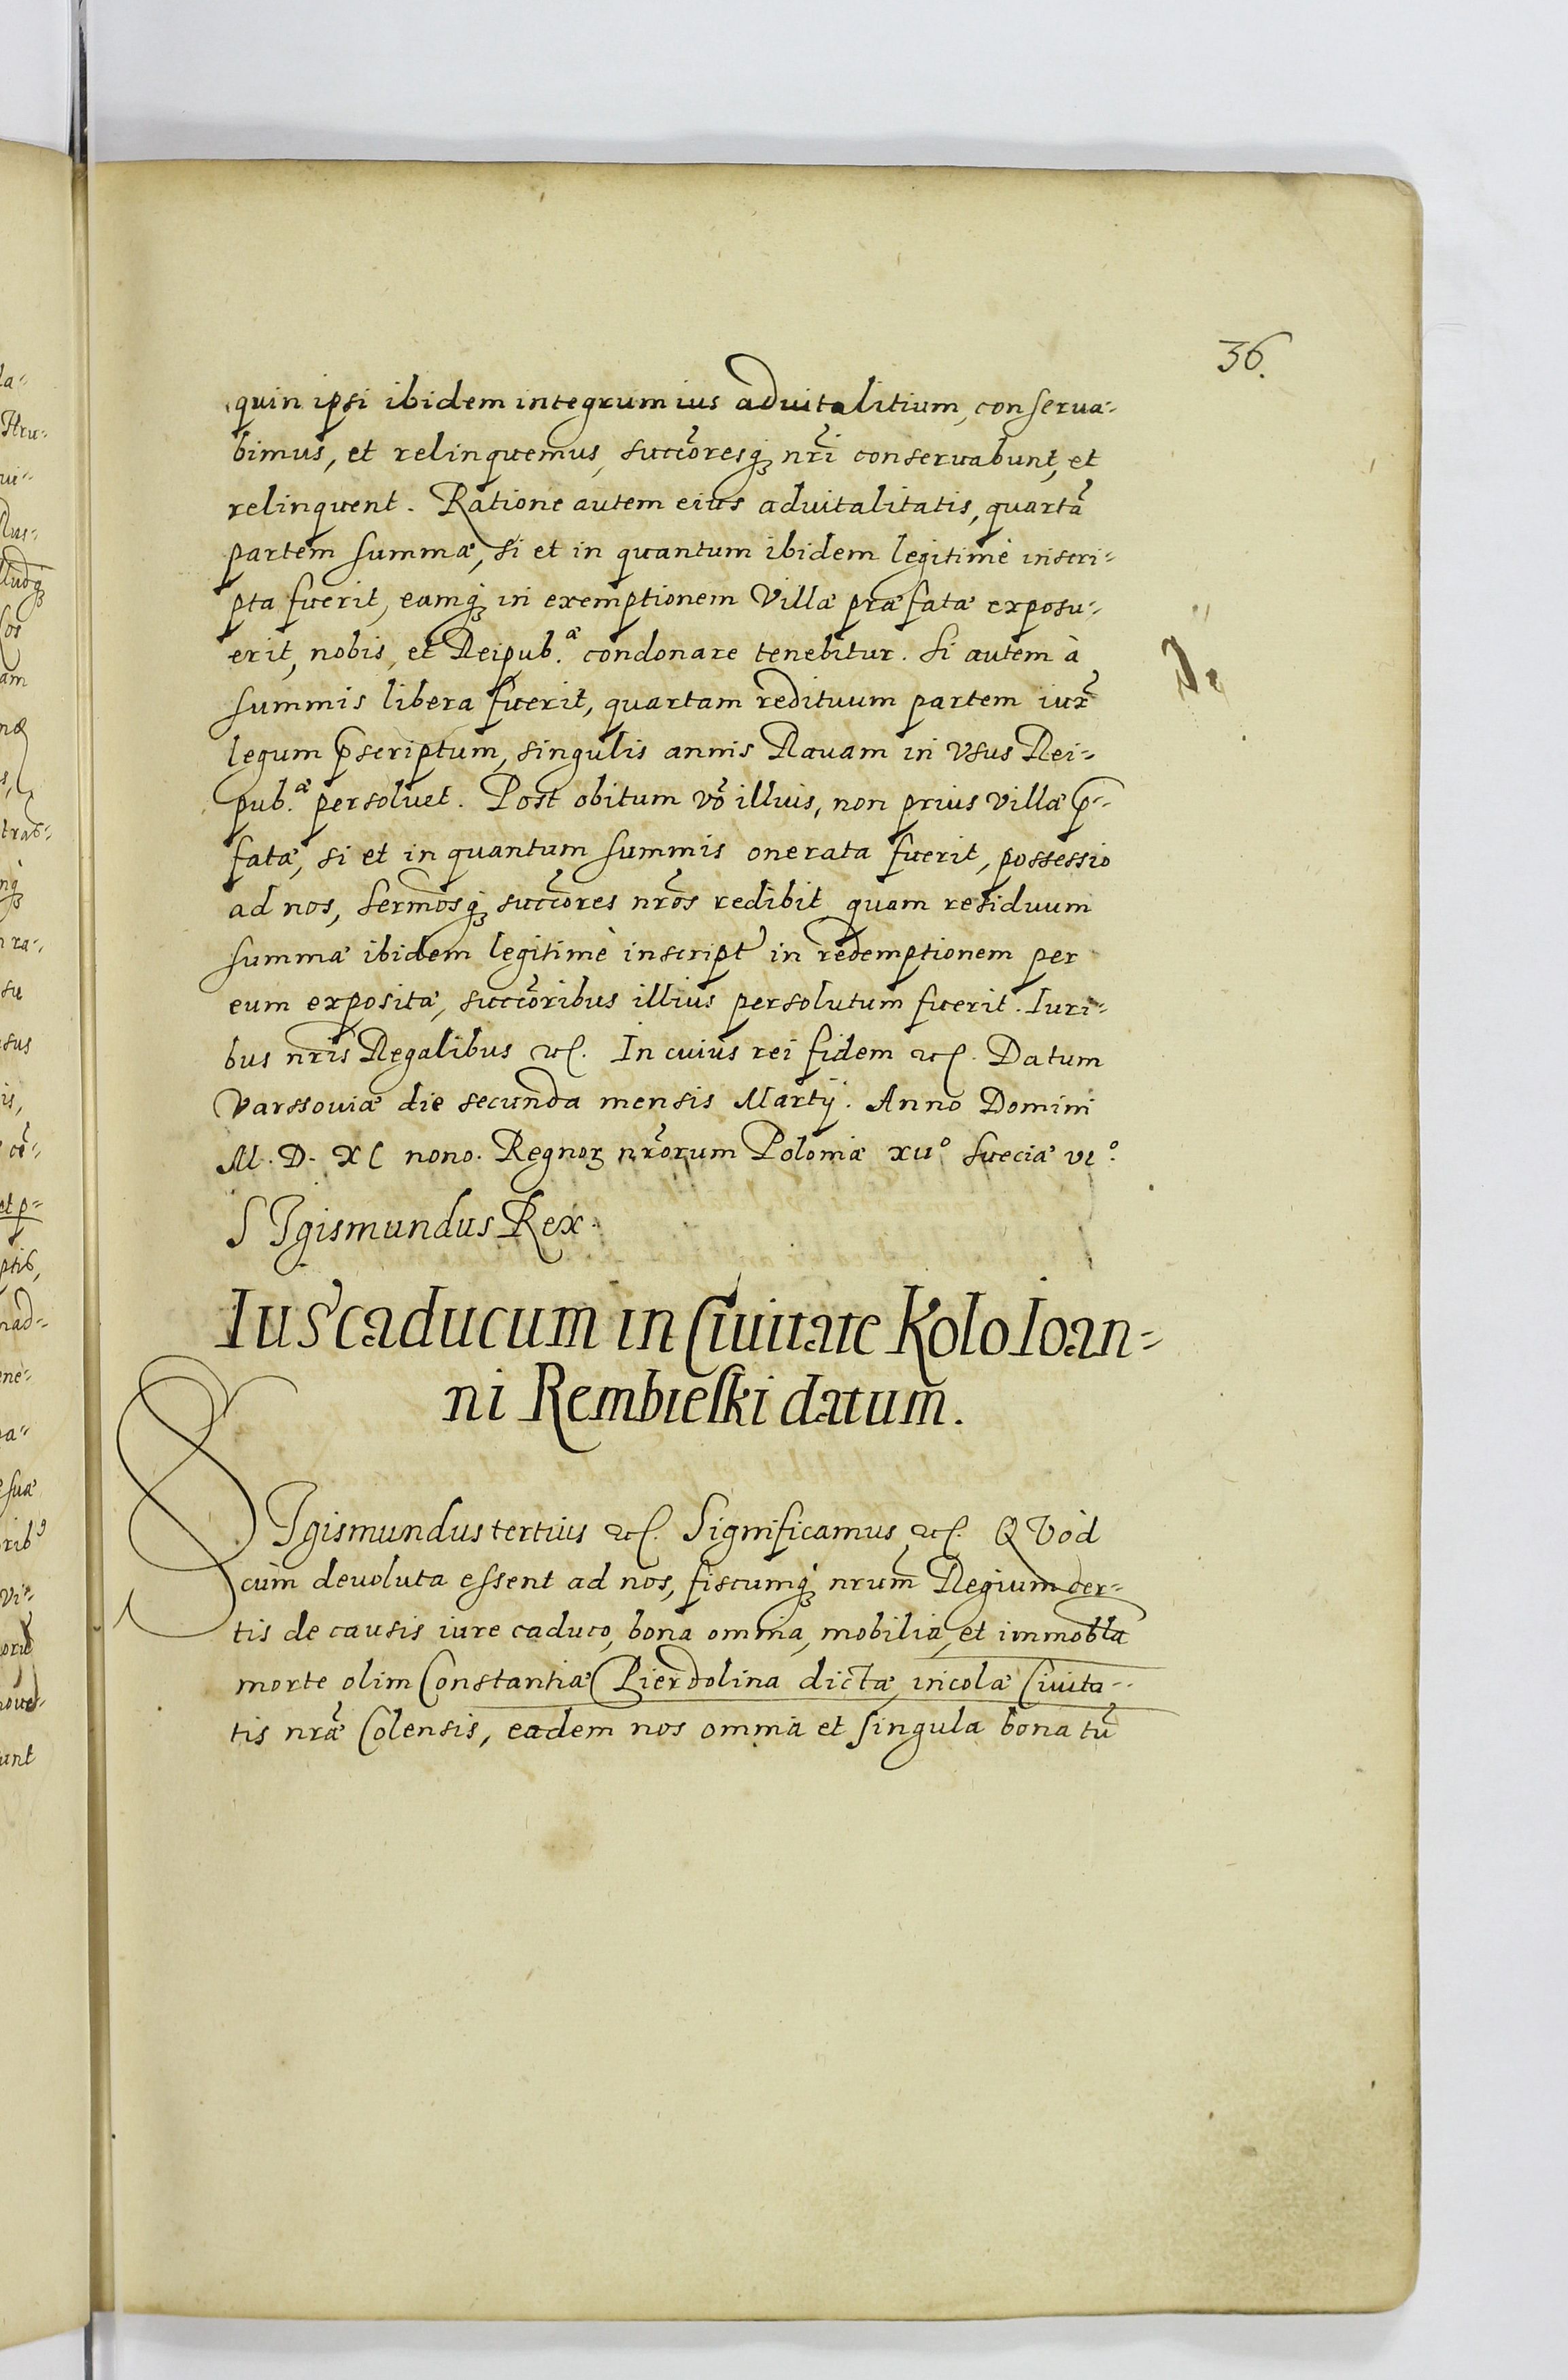 36.
quin ipsi ibidem integrum ius aduitalitium, conserua-
bimus, et relinquemus, succōresq₃ nr̃i conseruabunt, et
relinquent. Ratione autem eius aduitalitatis, quartã
partem summæ, si et in quantum ibidem legitimè inscri-
pta fuerit, eamq₃ in exemptionem Villæ præfatæ exposu-
erit, nobis, et Reipub.æ condonare tenebitur. Si autem à
summis libera fuerit, quartam redituum partem iux̃
legum p̄scriptum, singulis annis Rauam in Vsus Rei-
pub.æ persoluet. Post obitum võ illius, non prius villæ p̄-
fatæ, si et in quantum summis onerata fuerit, possessio
ad nos, Sermosq₃ succōres nr̃os redibit quam residuum
summæ ibidem legitimè inscript' in redemptionem per
eum expositæ, succōribus illius persolutum fuerit. Iuri-
bus nr̃is Regalibus etc. In cuius rei fidem etc. Datum
Varssouiæ die secunda mensis Martij. Anno Domini
M. D. XC nono. Regnoꝝ nr̃orum Poloniæ xiiº Sueciæ viº.
SIgismundus Rex.
Ius caducum in Ciuitate Kolo Ioan-
ni Rembieski datum.
SIgismundus tertius etc. Significamus etc. QVòd
cùm deuoluta essent ad nos, fiscumq₃ nrum̃ Regium cer-
tis de causis iure caduco, bona omnia, mobilia, et immobl̃a
morte olim Constantiæ Pierdolina dictæ, incolæ Ciuita-
tis nræ̃ Colensis, eadem nos omnia et singula bona tũ